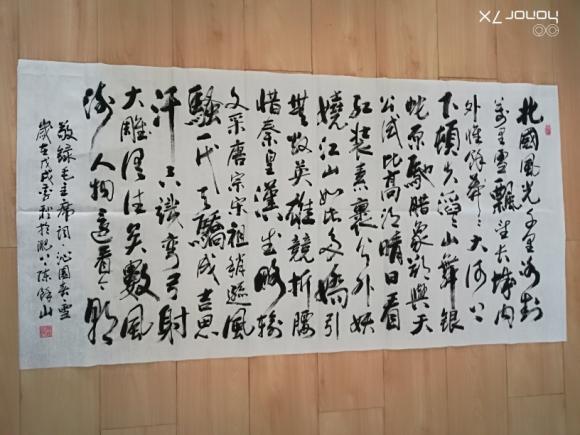 北國風光千里冰封
萬里雪飄望長城內
外惟餘莽々大河上
下頓失滔々山舞銀
蛇原馳臘象欲與天
公試比高須晴日看
紅裝素裹分外妖
嬈江山如此多嬌引
無數英雄競折腰
惜秦皇漢武略輸
文采唐宗宋祖稍遜風
騷一代天驕成吉思
汗只識彎弓射
大雕俱往矣數風
流人物還看今朝
敬錄毛主席詞·沁園春雪
歲在戊戌 於肥 陳 山
honor 7X